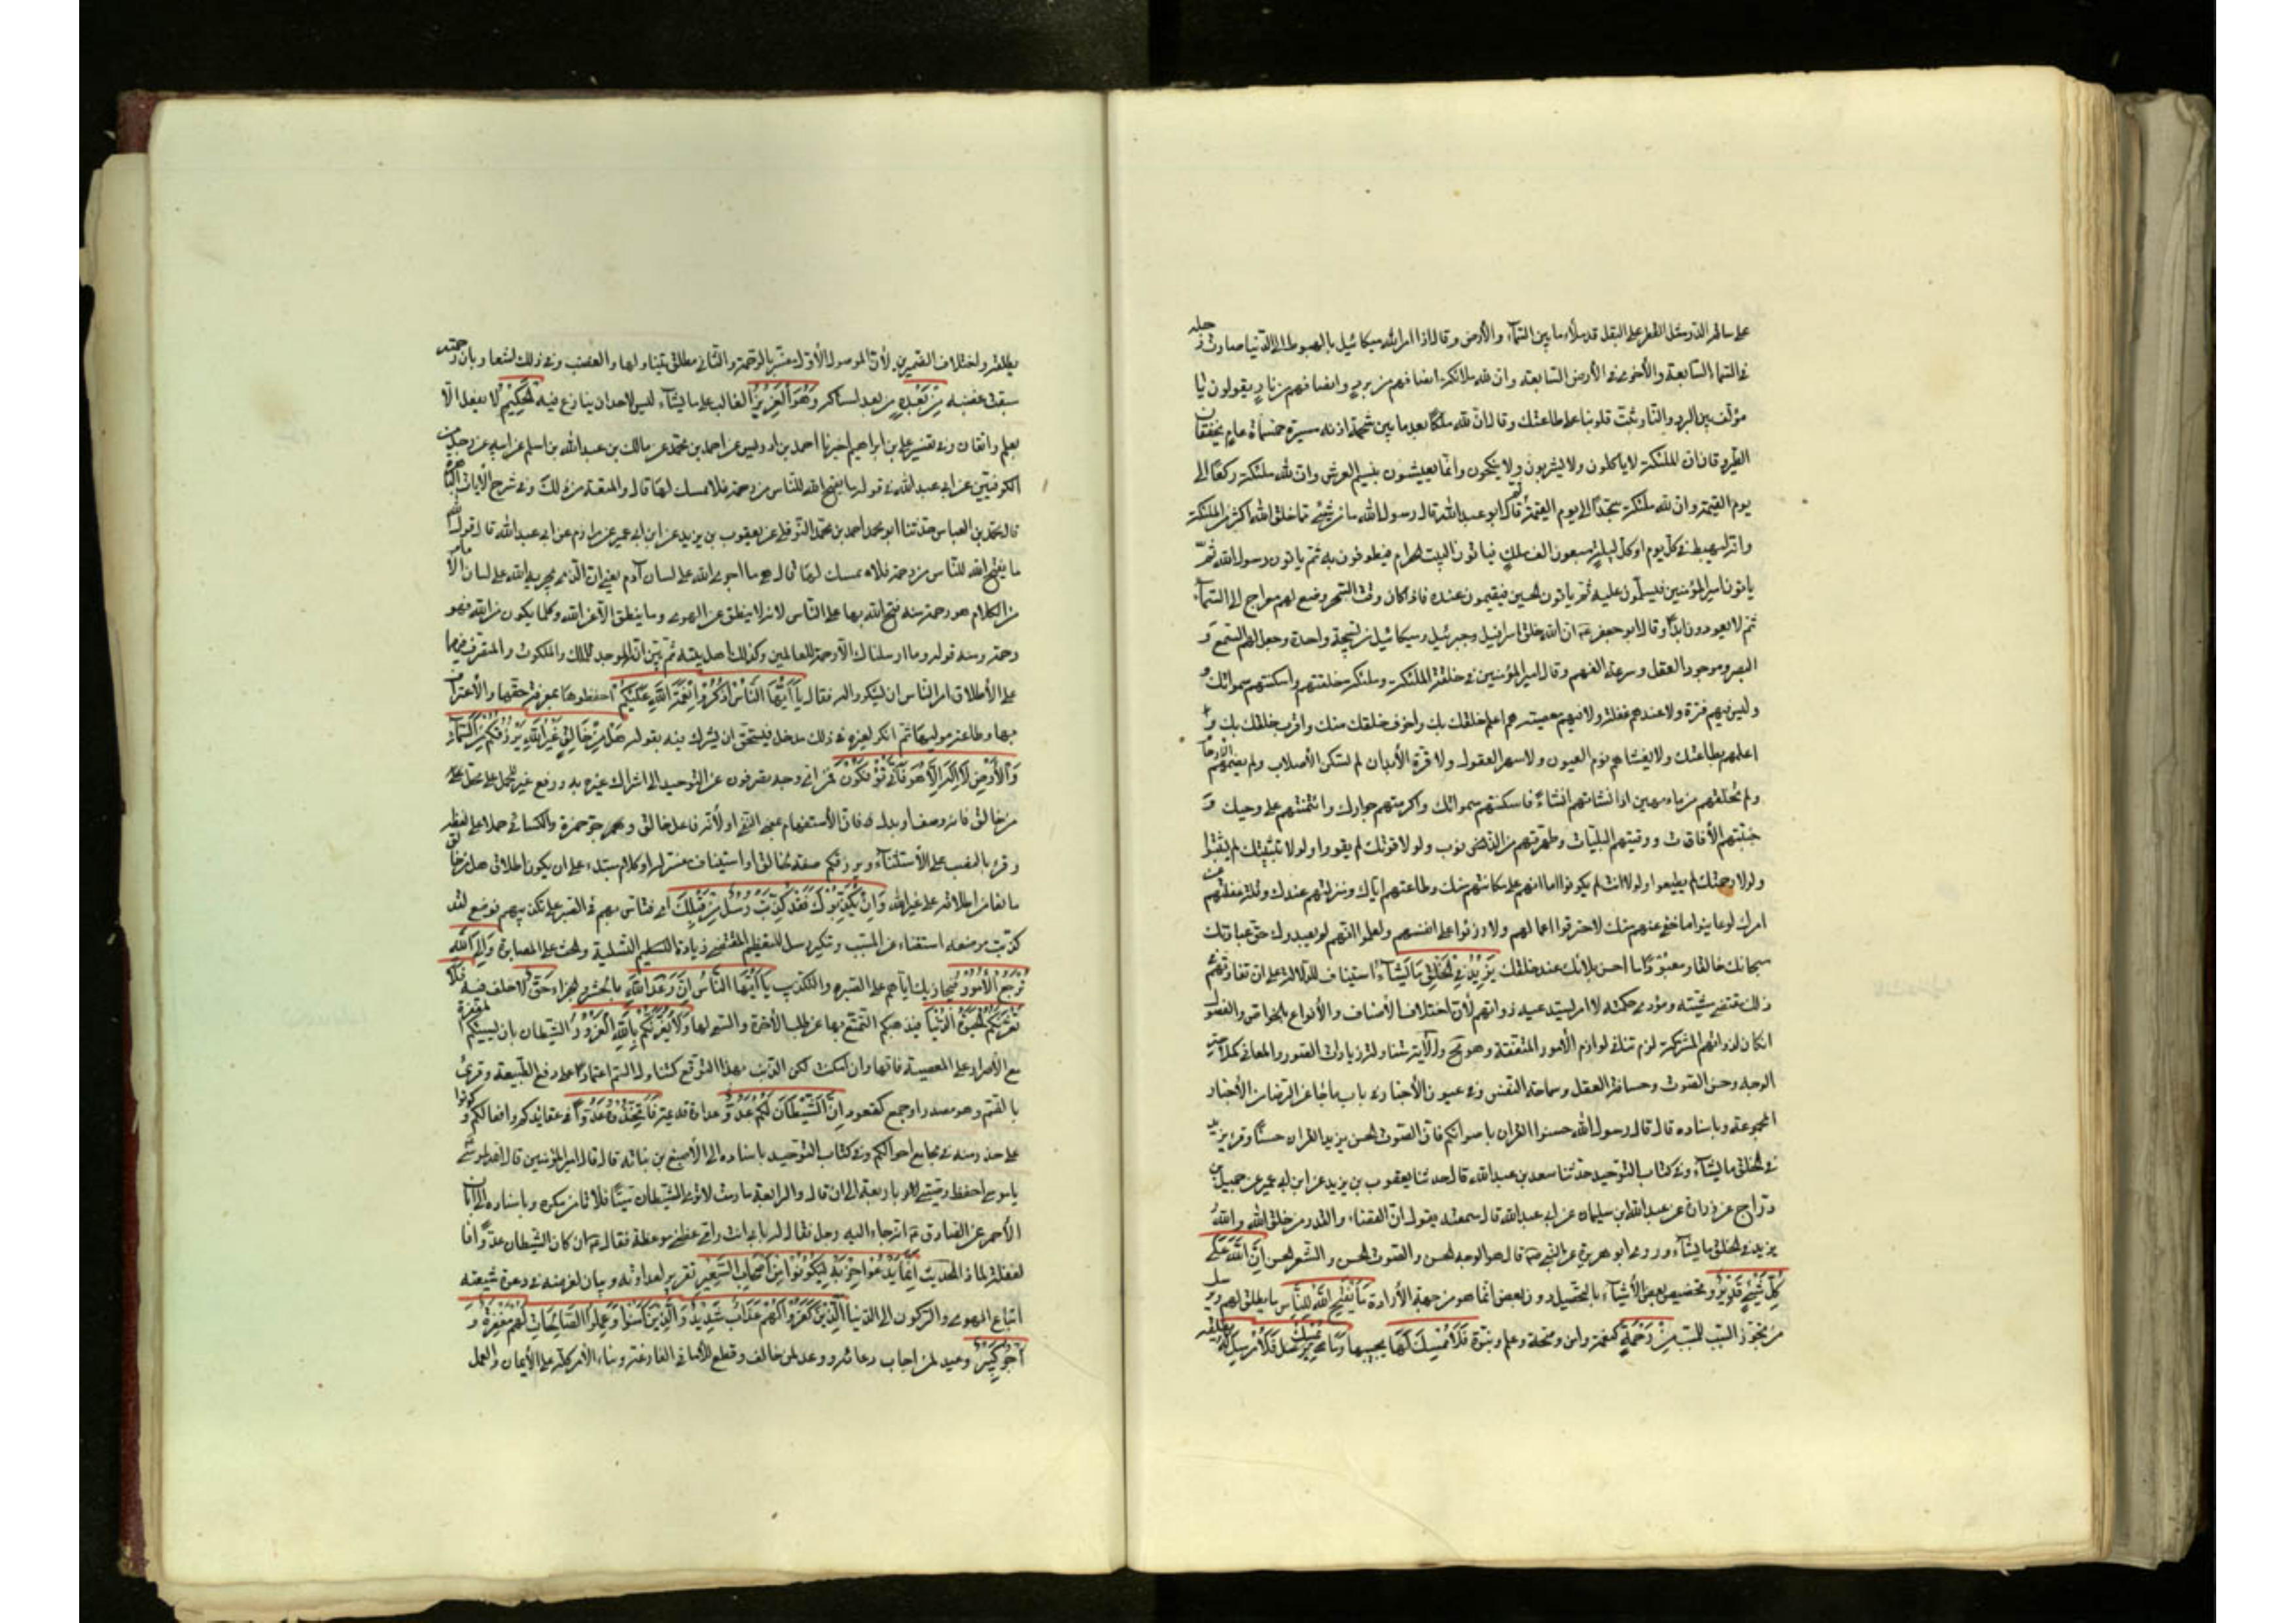 على ساقه الدر مثل القطر على البقل قد ملأ ما بين السماء والأرض وقال اذا امر الله ميكائيل بالهبوط الى الدنيا صارت رجله
في السماء السابعة والأخرى في الأرض السابعة وان لله ملائكة انصافهم من برد وانصافهم من نار يقولون يا
مؤلف بين البرد والنار ثبت قلوبنا على طاعتك وقال ان لله ملكا بعد ما بين شحمة اذنه مسيرة خمسمأة عام بخفقان
الطير وقال ان الملئكة لا ياكلون ولا يشربون ولا ينكحون وانما يعيشون بنسيم العرش وان لله ملئكة ركعا الى
يوم القيمة وان لله ملئكة سجدا الى يوم القيمة ثم قال ابو عبد الله قال رسول الله ما من شئ مما خلق الله اكثر من الملئكة
وانه ليهبط في كل يوم او كل ليلة سبعون الف ملك فياتون البيت الحرام فيطوفون به ثم ياتون رسول الله ثم
ياتون امير المؤمنين فيسلمون عليه ثم ياتون الحسين فيقيمون عنده فاذا كان وقت السحر وضع لهم معراج الى السماء
ثم لا يعودون ابدا وقال ابو جعفر ان الله خلق اسرافيل وجبرئيل وميكائيل من تسبيحة واحدة وجعل لهم السمع و
البصر وموجود العقل وسرعة الفهم وقال امير المؤمنين في خلقة الملئكة وملئكة خلقتهم واسكنتهم سمواتك و
وليس فيهم فترة ولا عندهم غفلة ولا فيهم معصية هم اعلم خلقك بك واخوف خلقك منك واقرب خلقك بك و
اعلمهم بطاعتك ولا يغشاهم نوم العيون ولا سهو العقول ولا فترة الأبدان لم تسكن الأصلاب ولم يضمهم الأرحام
ولم تخلقهم من ماء مهين انشأتهم انشاء فاسكنتهم سمواتك واكرمتهم جوارك وائتمنتهم على وحيك و
جنبتهم الأفات ووقيتهم البليات وطهرتهم من الذنوب ولولا قوتك لم يقووا ولولا تثبيتك لم يثبتوا
ولولا رحمتك لم يطيعوا ولولا انت لم يكونوا اما انهم على مكانتهم منك وطاعتهم اياك ومنزلتهم عندك وقلة غفلتهم
امرك لو عاينوا ما خفي عنهم منك لاحتقروا اعمالهم ولازروا على انفسهم ولعلموا انهم لم يعبدوك حق عبادتك
سبحانك خالقا ومعبودا ما احسن بلائك عند خلقك يَزِيدُ فِي الْخَلْقِ مَا يَشَاءُ استيناف للدلالة على ان تفاوتهم في
ذلك مقتضى مشيته ومؤدى حكمته لا امر يستدعيه ذواتهم لأن اختلاف الأصناف والأنواع بالخواص والفصول
ان كان لذواتهم المشتركة لزم تنافي لوازم الأمور المتفقة وهو مح والآية متناولة زيادات الصور والمعاني كملاحة
الوجه وحسن الصوت وحصافة العقل وسماحة النفس وفي عيون الأخبار في باب ما جاء عن الرضا من الأخبار
المجموعة وباسناده قال قال رسول الله حسنوا القران باصواتكم فان الصوت الحسن يزيد القران حسنا وقرء يزيد
في الخلق ما يشاء وفي كتاب التوحيد حدثنا سعد بن عبد الله قال حدثنا يعقوب بن يزيد عن ابن ابي عمير عن جميل بن
دراج عن زرارة عن عبد الله بن سليمان عن ابي عبد الله قال سمعته يقول ان القضاء والقدر من خلق الله والله
يزيد في الخلق ما يشاء وروى ابو هريرة عن النبي قال هو الوجه الحسن والصوت الحسن والشعر الحسن اِنَّ اللَّهَ عَلَى
كُلِّ شَيْءٍ قَدِيرٌ وتخصيص بعض الأشياء بالتحصيل دون بعض انما هو من جهة الأرادة مَا يَفْتَحِ اللَّهُ لِلنَّاسِ ما يطلق لهم ويرسل
من تجوز السبب للمسبب مِنْ رَحْمَةٍ كنعمة وامن وصحة وعلم ونبوة فَلَا مُمْسِكَ لَهَا يحبسها وَمَا يُمْسِكْ فَلَا مُرْسِلَ لَهُ يطلقه
يطلقه واختلاف الضميرين لأن الموصول الأول مفسر بالرحمة والثاني مطلق يتناولها والغضب وفي ذلك اشعار بان رحمته
سبقت غضبه مِنْ بَعْدِهِ من بعد امساكه وَهُوَ الْعَزِيزُ الغالب على ما يشاء ليس لاحد ان ينازع فيه الْحَكِيمُ لا يفعل الا
بعلم واتقان وفي تفسير علي بن ابراهيم اخبرنا احمد بن ادريس عن احمد بن محمد عن مالك بن عبد الله بن اسلم عن ابيه عن رجل من
الكوفيين عن ابي عبد الله في قوله ما يفتح الله للناس من رحمة فلا ممسك لها قال والمتعة من ذلك وفي شرح الآيات الباهرة
قال محمد بن العباس حدثنا ابو محمد احمد بن محمد النوفلي عن يعقوب بن يزيد عن ابن ابي عمير عن مرازم عن ابي عبد الله قال قول الله
ما يفتح الله للناس من رحمة فلا ممسك لها قال هي ما اجرى الله على لسان الامام يعني ان الذي يجريه الله على لسان الامام
من الكلام هو رحمة منه فتح الله بها على الناس لانه لا ينطق عن الهوى وما ينطق الا عن الله وكلما يكون من الله فهو
رحمة ومنه قوله وما ارسلناك الا رحمة للعالمين وكذلك اهل بيته ثم بين انه الموجد للملك والملكوت والمتصرف فيهما
على الأطلاق امر الناس ان يشكروا له فقال يَا اَيُّهَا النَّاسُ اذْكُرُوا نِعْمَةَ اللَّهِ عَلَيْكُمْ احفظوها بمعرفة حقها والأعتراف
بها وطاعة موليها ثم انكر لغيره في ذلك مدخل فيستحق ان يشرك به بقوله هَلْ مِنْ خَالِقٍ غَيْرُ اللَّهِ يَرْزُقُكُمْ مِنَ السَّمَاءِ
وَالْاَرْضِ لَا اِلَهَ اِلَّا هُوَ فَاَنَّى تُؤْفَكُونَ فمن اي وجه تصرفون عن التوحيد الى اشراك غيره به ورفع غير للحمل على محل
من خالق فانه وصف او بدل فان الأستفهام بمعنى النفي او لأنه فاعل خالق وجره حمزة والكسائي حملا على لفظه
وقرء بالنصب على الأستثناء ويرزقكم صفة لخالق او استيناف مفسر له او كلام مبتدء وعلى ان يكون اطلاق هل من خالق
مانعا من اطلاقه على غير الله وَاِنْ يُكَذِّبُوكَ فَقَدْ كُذِّبَتْ رُسُلٌ مِنْ قَبْلِكَ اي فتاس بهم في الصبر على تكذيبهم فوضع فقد
كذبت موضعه استغناء عن المسبب وتنكير رسل للتعظيم المقتضي زيادة التسلية والحث على المصابرة وَاِلَى اللَّهِ
تُرْجَعُ الْاُمُورُ فيجازيك واياهم على الصبر والتكذيب يَا اَيُّهَا النَّاسُ اِنَّ وَعْدَ اللَّهِ بالحشر والجزاء حَقٌّ لا خلف فيه فَلَا
تَغُرَّنَّكُمُ الْحَيَوةُ الدُّنْيَا فيذهبكم التمتع بها عن طلب الأخرة والسعي لها وَلَا يَغُرَّنَّكُمْ بِاللَّهِ الْغَرُورُ الشيطان بان يمنيكم المغفرة
مع الأصرار على المعصية فانها وان امكنت لكن الذنب بهذا التوقع كتناول السم اعتمادا على دفع الطبيعة وقرئ
بالضم وهو مصدر او جمع كقعود اِنَّ الشَّيْطَانَ لَكُمْ عَدُوٌّ عداوة قديمة فَاتَّخِذُوهُ عَدُوًّا في عقائدكم وافعالكم وكونوا
على حذر منه في مجامع احوالكم وفي كتاب التوحيد باسناده الى الأصبغ بن نباتة قال قال امير المؤمنين قال الله لموسى
يا موسى احفظ وصيتي لك باربعة الى ان قال والرابعة ما دمت لا ترى الشيطان ميتا فلا تامن مكره وباسناده الى ابان
الأحمر عن الصادق انه جاء اليه رجل فقال له بابي انت وامي عظني موعظة فقال ان كان الشيطان عدوا فا
لغفلة لماذا الحديث اِنَّمَا يَدْعُوا حِزْبَهُ لِيَكُونُوا مِنْ اَصْحَابِ السَّعِيرِ تقرير لعداوته وبيان لغرضه في دعوة شيعته
اتباع الهوى والركون الى الدنيا اَلَّذِينَ كَفَرُوا لَهُمْ عَذَابٌ شَدِيدٌ وَالَّذِينَ آمَنُوا وَعَمِلُوا الصَّالِحَاتِ لَهُمْ مَغْفِرَةٌ وَ
اَجْرٌ كَبِيرٌ وعيد لمن اجاب دعائه ووعد لمن خالف وقطع للأماني الفارغة وبناء الأمر كله على الأيمان والعمل